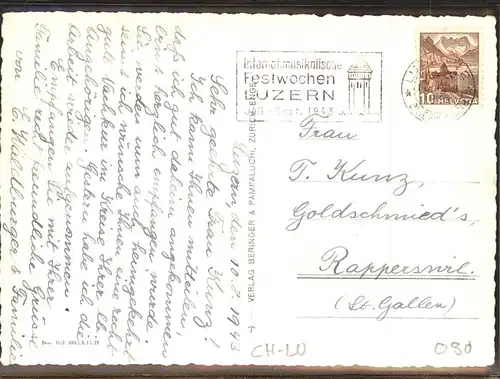 Luzern, den 10.8.1943
Sehr geehrte Frau Kunz!
Ich kann Ihnen mitteilen,
daß ich gut daheim angekommen
und herzlich empfangen wurde.
Sie werden nun auch heimgekehrt
sein & ich wünsche Ihnen eine recht
gute Nachkur im Kreise Ihrer lb.
Angehörigen. Gestern habe ich die
Arbeit wieder aufgenommen.
Empfangen Sie mit Ihrer
Familie recht freundliche Grüsse
von E. Waldburger & Familie
VERLAG BERINGER & PAMPALUCHI, ZÜRICH-ENGE
Internat. musikalische
Festwochen
LUZERN
1943
10 HELVETIA
Frau
T. Kunz,
Goldschmied's,
Rapperswil.
(St. Gallen)
CH-LU
030